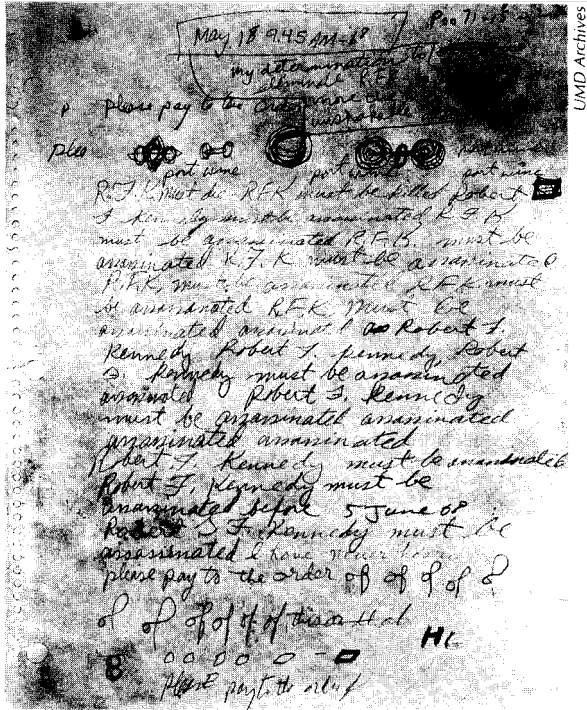 May 18 9.45 AM-68
my determination to
R.F.K.
Please pay to the order
more
port wine port wine port wine
R.F.K. must die RFK must be killed Robert
F. Kennedy must be assassinated R F K
must be assassinated R.F.K. must be
assassinated R.F.K must be assassinated
R.F.K. must be assassinated R.F.K must
be assassinated R.F.K must be
assassinated assassinated Robert F.
Kennedy Robert F. Kennedy, Robert
F. Kennedy must be assassinated
assassinated Robert F. Kennedy
must be assassinated assassinated
assassinated assassinated
Robert F. Kennedy must be assassinated
Robert F. Kennedy must be
assassinated before 5 June 68
Robert F. Kennedy must be
assassinated I have never
please pay to the order of of of of of
of of of of of of of
please pay to the order of
UMD Archives